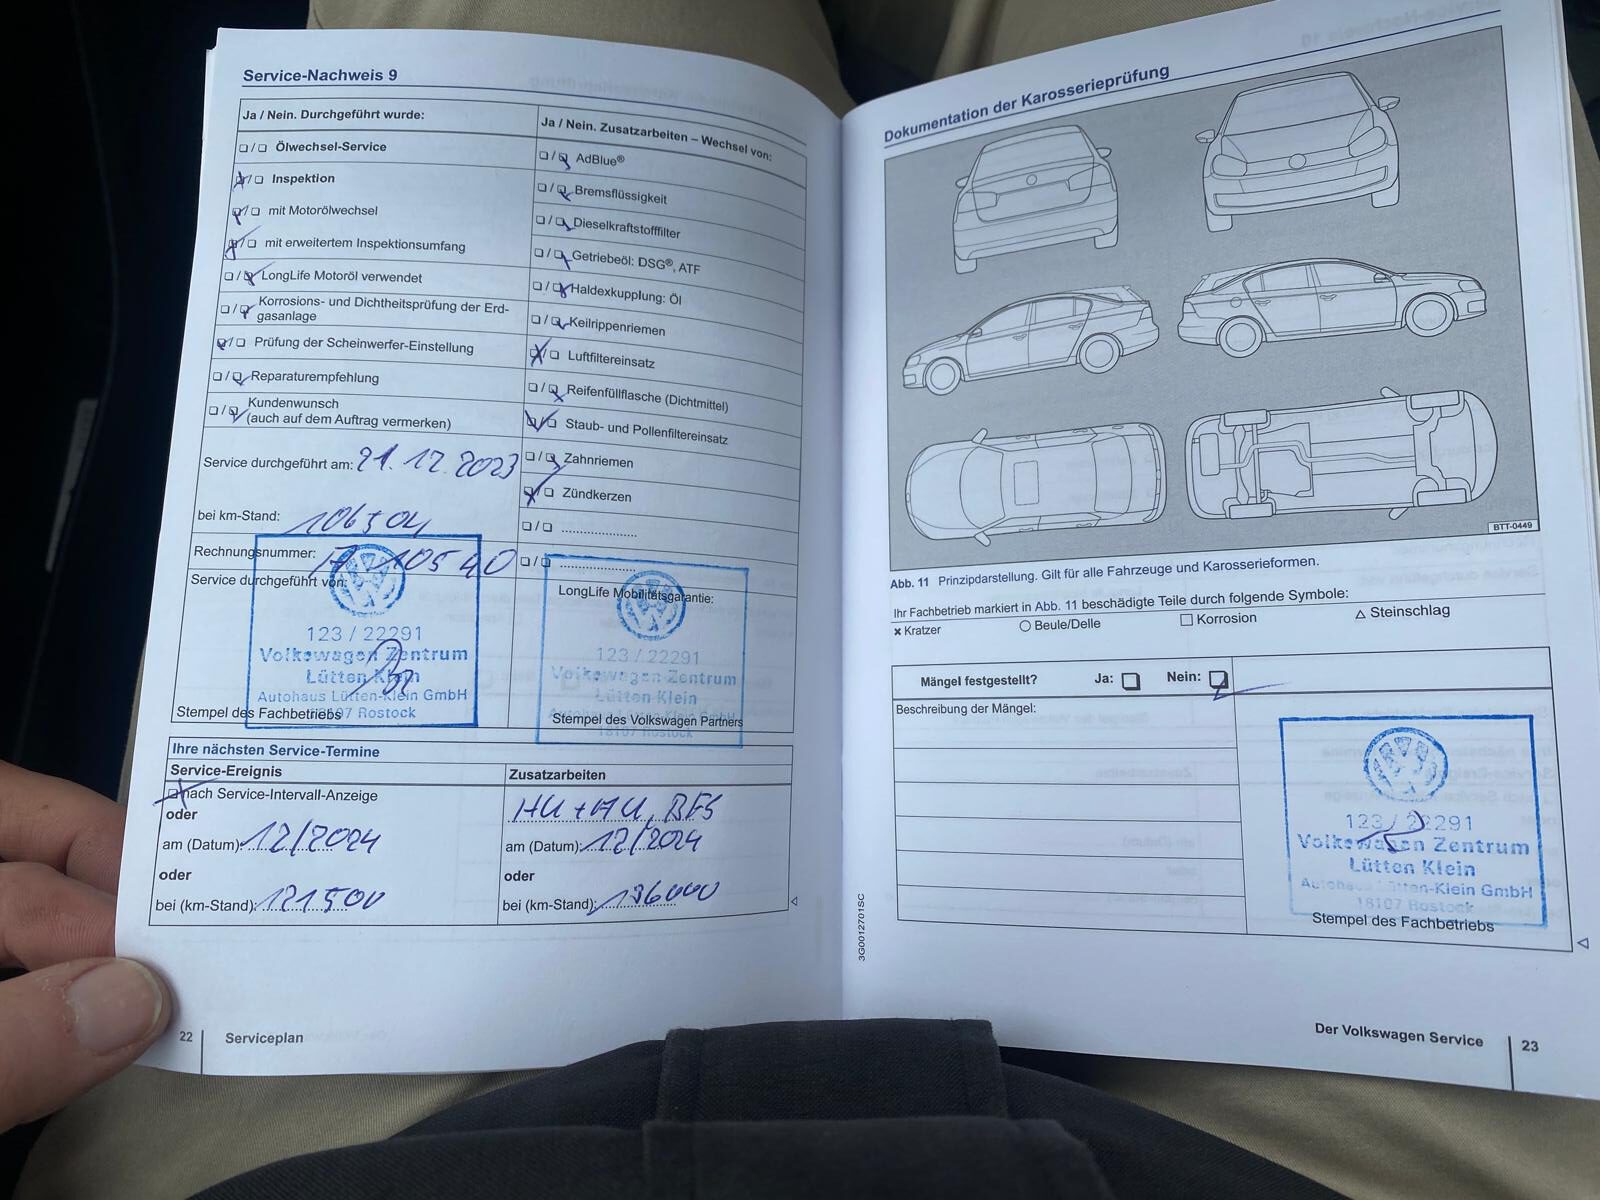 Service-Nachweis 9
Ja / Nein. Durchgeführt wurde:
❏/❏ Ölwechsel-Service
❏/❏ Inspektion
❏/❏ mit Motorölwechsel
❏/❏ mit erweitertem Inspektionsumfang
❏/❏ LongLife Motoröl verwendet
❏/❏ Korrosions- und Dichtheitsprüfung der Erd-
gasanlage
❏/❏ Prüfung der Scheinwerfer-Einstellung
❏/❏ Reparaturempfehlung
❏/❏ Kundenwunsch
(auch auf dem Auftrag vermerken)
Service durchgeführt am: 21.12.2023
bei km-Stand:
Rechnungsnummer: 10540
Service durchgeführt von:
123 / 22291
Volkswagen Zentrum
Lütten Klein
Autohaus Lütten-Klein GmbH
18107 Rostock
Stempel des Fachbetriebs
Ja / Nein. Zusatzarbeiten – Wechsel von:
❏/❏ AdBlue®
❏/❏ Bremsflüssigkeit
❏/❏ Dieselkraftstofffilter
❏/❏ Getriebeöl: DSG®, ATF
❏/❏ Haldexkupplung: Öl
❏/❏ Keilrippenriemen
❏/❏ Luftfiltereinsatz
❏/❏ Reifenfüllflasche (Dichtmittel)
❏/❏ Staub- und Pollenfiltereinsatz
❏/❏ Zahnriemen
❏/❏ Zündkerzen
❏/❏ ....................
❏/❏ ....................
LongLife Mobilitätsgarantie:
123 / 22291
Volkswagen Zentrum
Lütten Klein
Autohaus Lütten-Klein GmbH
18107 Rostock
Stempel des Volkswagen Partners
Ihre nächsten Service-Termine
Service-Ereignis
❏ nach Service-Intervall-Anzeige
oder
am (Datum): 12/2024
oder
bei (km-Stand): 121500
Zusatzarbeiten
HU+AU, BFS
am (Datum): 12/2024
oder
bei (km-Stand): 136000
22
Serviceplan
Dokumentation der Karosserieprüfung
BTT-0449
Abb. 11 Prinzipdarstellung. Gilt für alle Fahrzeuge und Karosserieformen.
Ihr Fachbetrieb markiert in Abb. 11 beschädigte Teile durch folgende Symbole:
× Kratzer ○ Beule/Delle □ Korrosion △ Steinschlag
Mängel festgestellt? Ja: ❏ Nein: ❏
Beschreibung der Mängel:
123 / 22291
Volkswagen Zentrum
Lütten Klein
Autohaus Lütten-Klein GmbH
18107 Rostock
Stempel des Fachbetriebs
3G0012701SC
Der Volkswagen Service
23